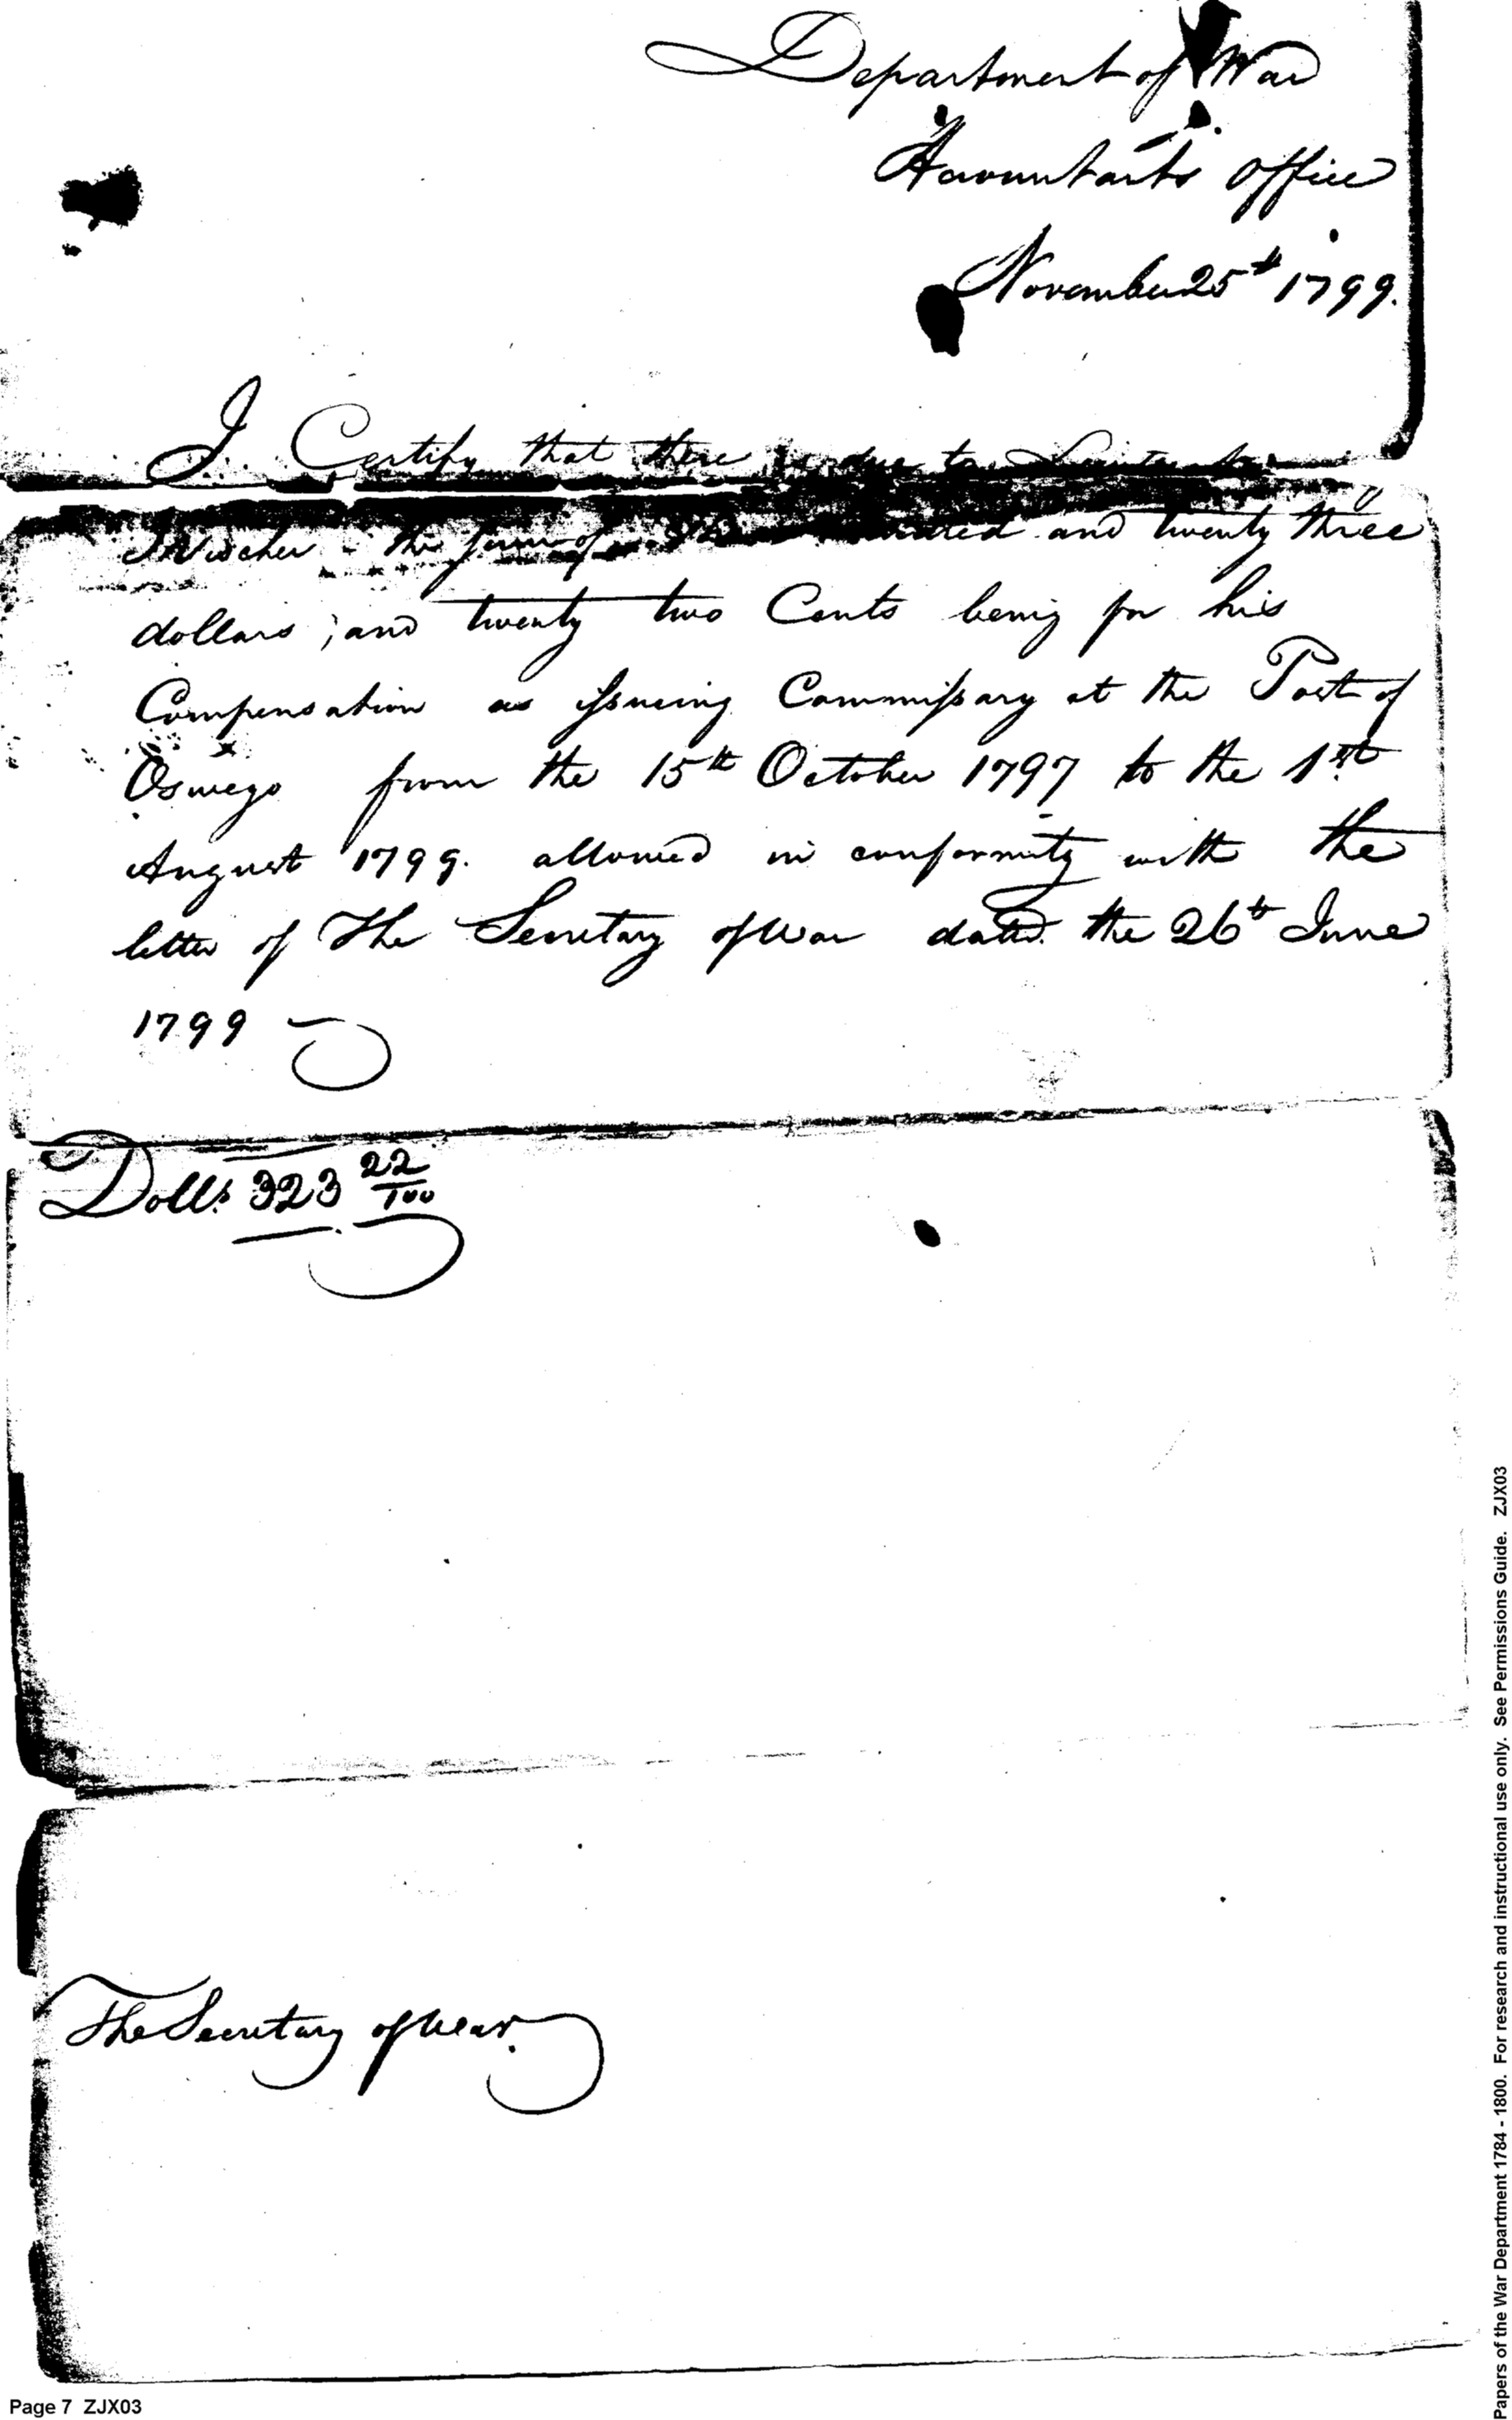 Department of War
Accountants Office
November 25th 1799.
I Certify that there is due to Lieutenant
Visscher the sum of Three hundred and twenty three
dollars, and twenty two Cents being for his
Compensation as issuing Commissary at the Post of
Oswego from the 15th October 1797 to the 1st
August 1799. allowed in conformity with the
letter of The Secretary of War dated the 26th June
1799
Dolls. 323 22/100
The Secretary of War.
Page 7 ZJX03
Papers of the War Department 1784 - 1800. For research and instructional use only. See Permissions Guide. ZJX03